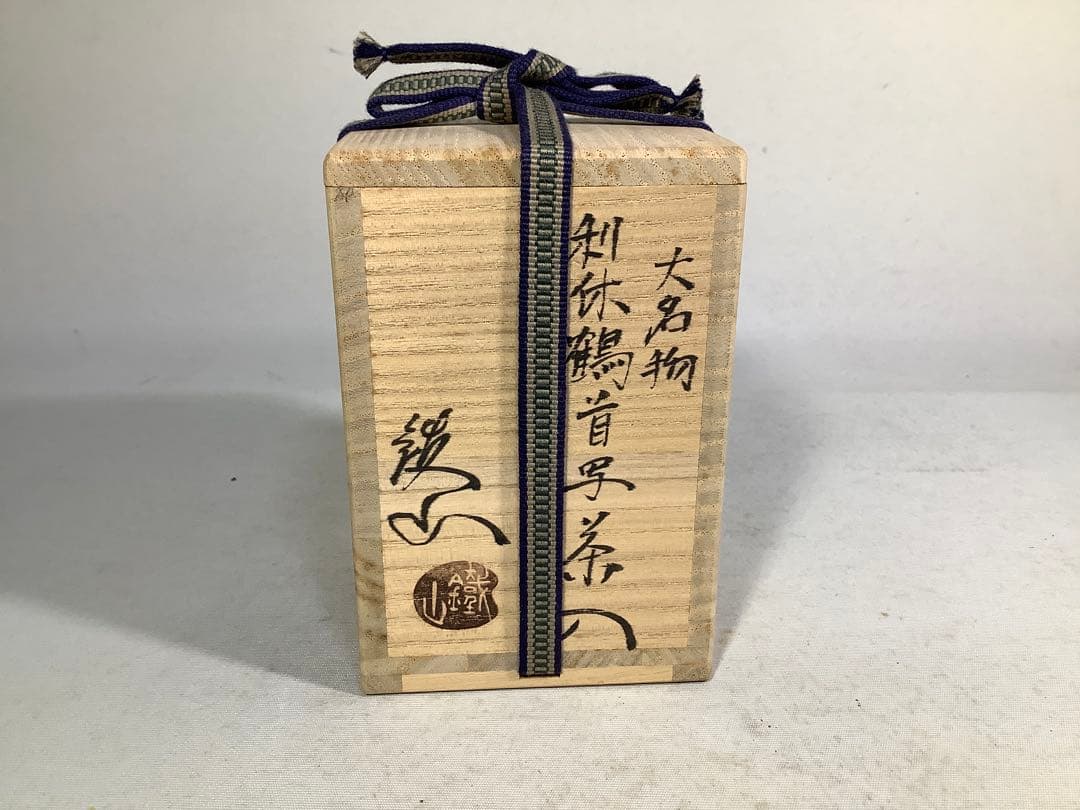 大名物
利休鶴首写茶入
鉄山
鐵山